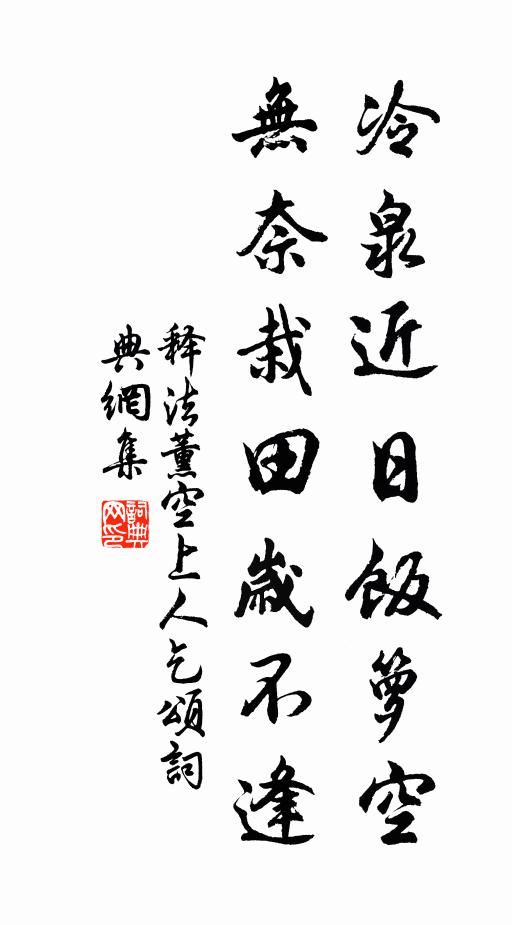 冷泉近日飯籮空
無奈栽田歲不逢
释法薰空上人乞頌詞
典網集
詞典网印